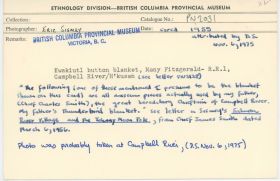 ETHNOLOGY DIVISION—BRITISH COLUMBIA PROVINCIAL MUSEUM
Collection: Catalogue No.: PN2031
Photographer: Eric Sismey Date: circa 1955
BRITISH COLUMBIA PROVINCIAL MUSEUM attributed by D.S.
VICTORIA, B.C. Nov. 6, 1975
Remarks:
Kwakiutl button blanket, Many Fitzgerald- R.R.1,
Campbell River/M'kusam (see letter verso)
"The following few of these mentioned I presume to be the blanket
shown on this card) are all museum pieces actually used by my father,
(Chief Charles Smith), the great hereditary Chieftain of Campbell River.
My father's Thunderbird blanket." see letter in Sismey's Salmon
River Village and the Talking Moon Pole, from Chief James Smith dated
March 6, 1956.
Photo was probably taken at Campbell River, (D.S. Nov. 6, 1975)